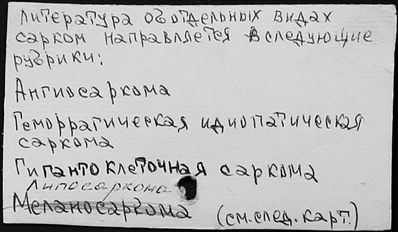 Литература об отдельных видах
сарком направляется в следующие
рубрики:
Ангиосаркома
Геморрагическая идиопатическая
саркома
Гигантоклеточная саркома
Липосаркома
Меланосаркома (см. след. карт.)